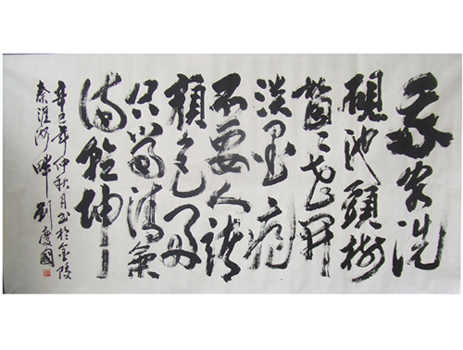 我家洗
硯池頭樹
箇々花開
淡墨痕
不要人誇
顏色好
只留清氣
滿乾坤
辛巳年仲秋月書於金陵
秦淮河畔劉慶國